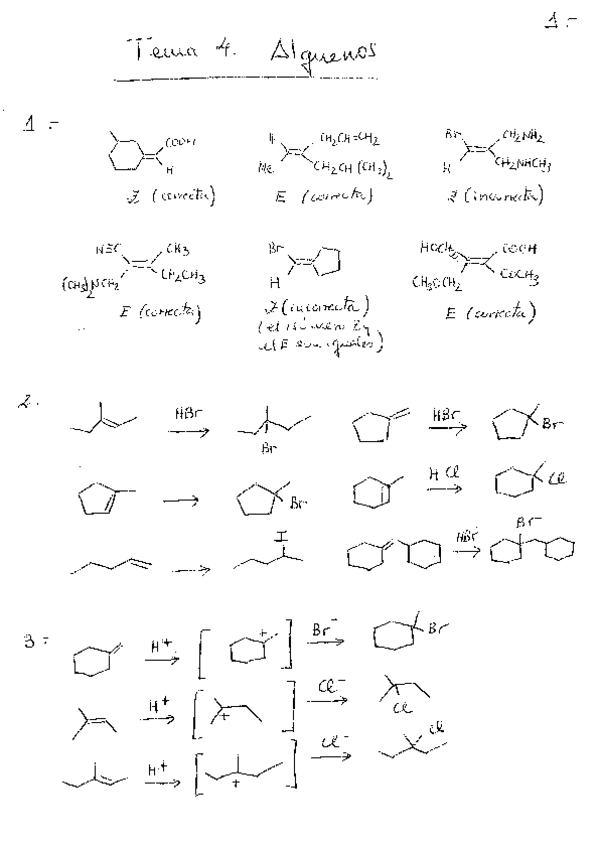 1.-
Tema 4. Alquenos
1.-
COOH
H
Z (correcta)
H
CH₂CH=CH₂
Me
CH₂CH(CH₃)₂
E (correcta)
Br
CH₂NH₂
H
CH₂NHCH₃
Z (incorrecta)
N≡C
CH₃
(CH₃)₂NCH₂
CH₂CH₃
E (correcta)
Br
H
Z (incorrecta)
(el isómero Z y
el E son iguales)
HOCH₂
COOH
CH₃OCH₂
COCH₃
E (correcta)
2.
HBr
Br
HBr
Br
Br
HCl
Cl
I
HBr
Br
3.-
H⁺
+
Br⁻
Br
H⁺
+
Cl⁻
Cl
H⁺
+
Cl⁻
Cl